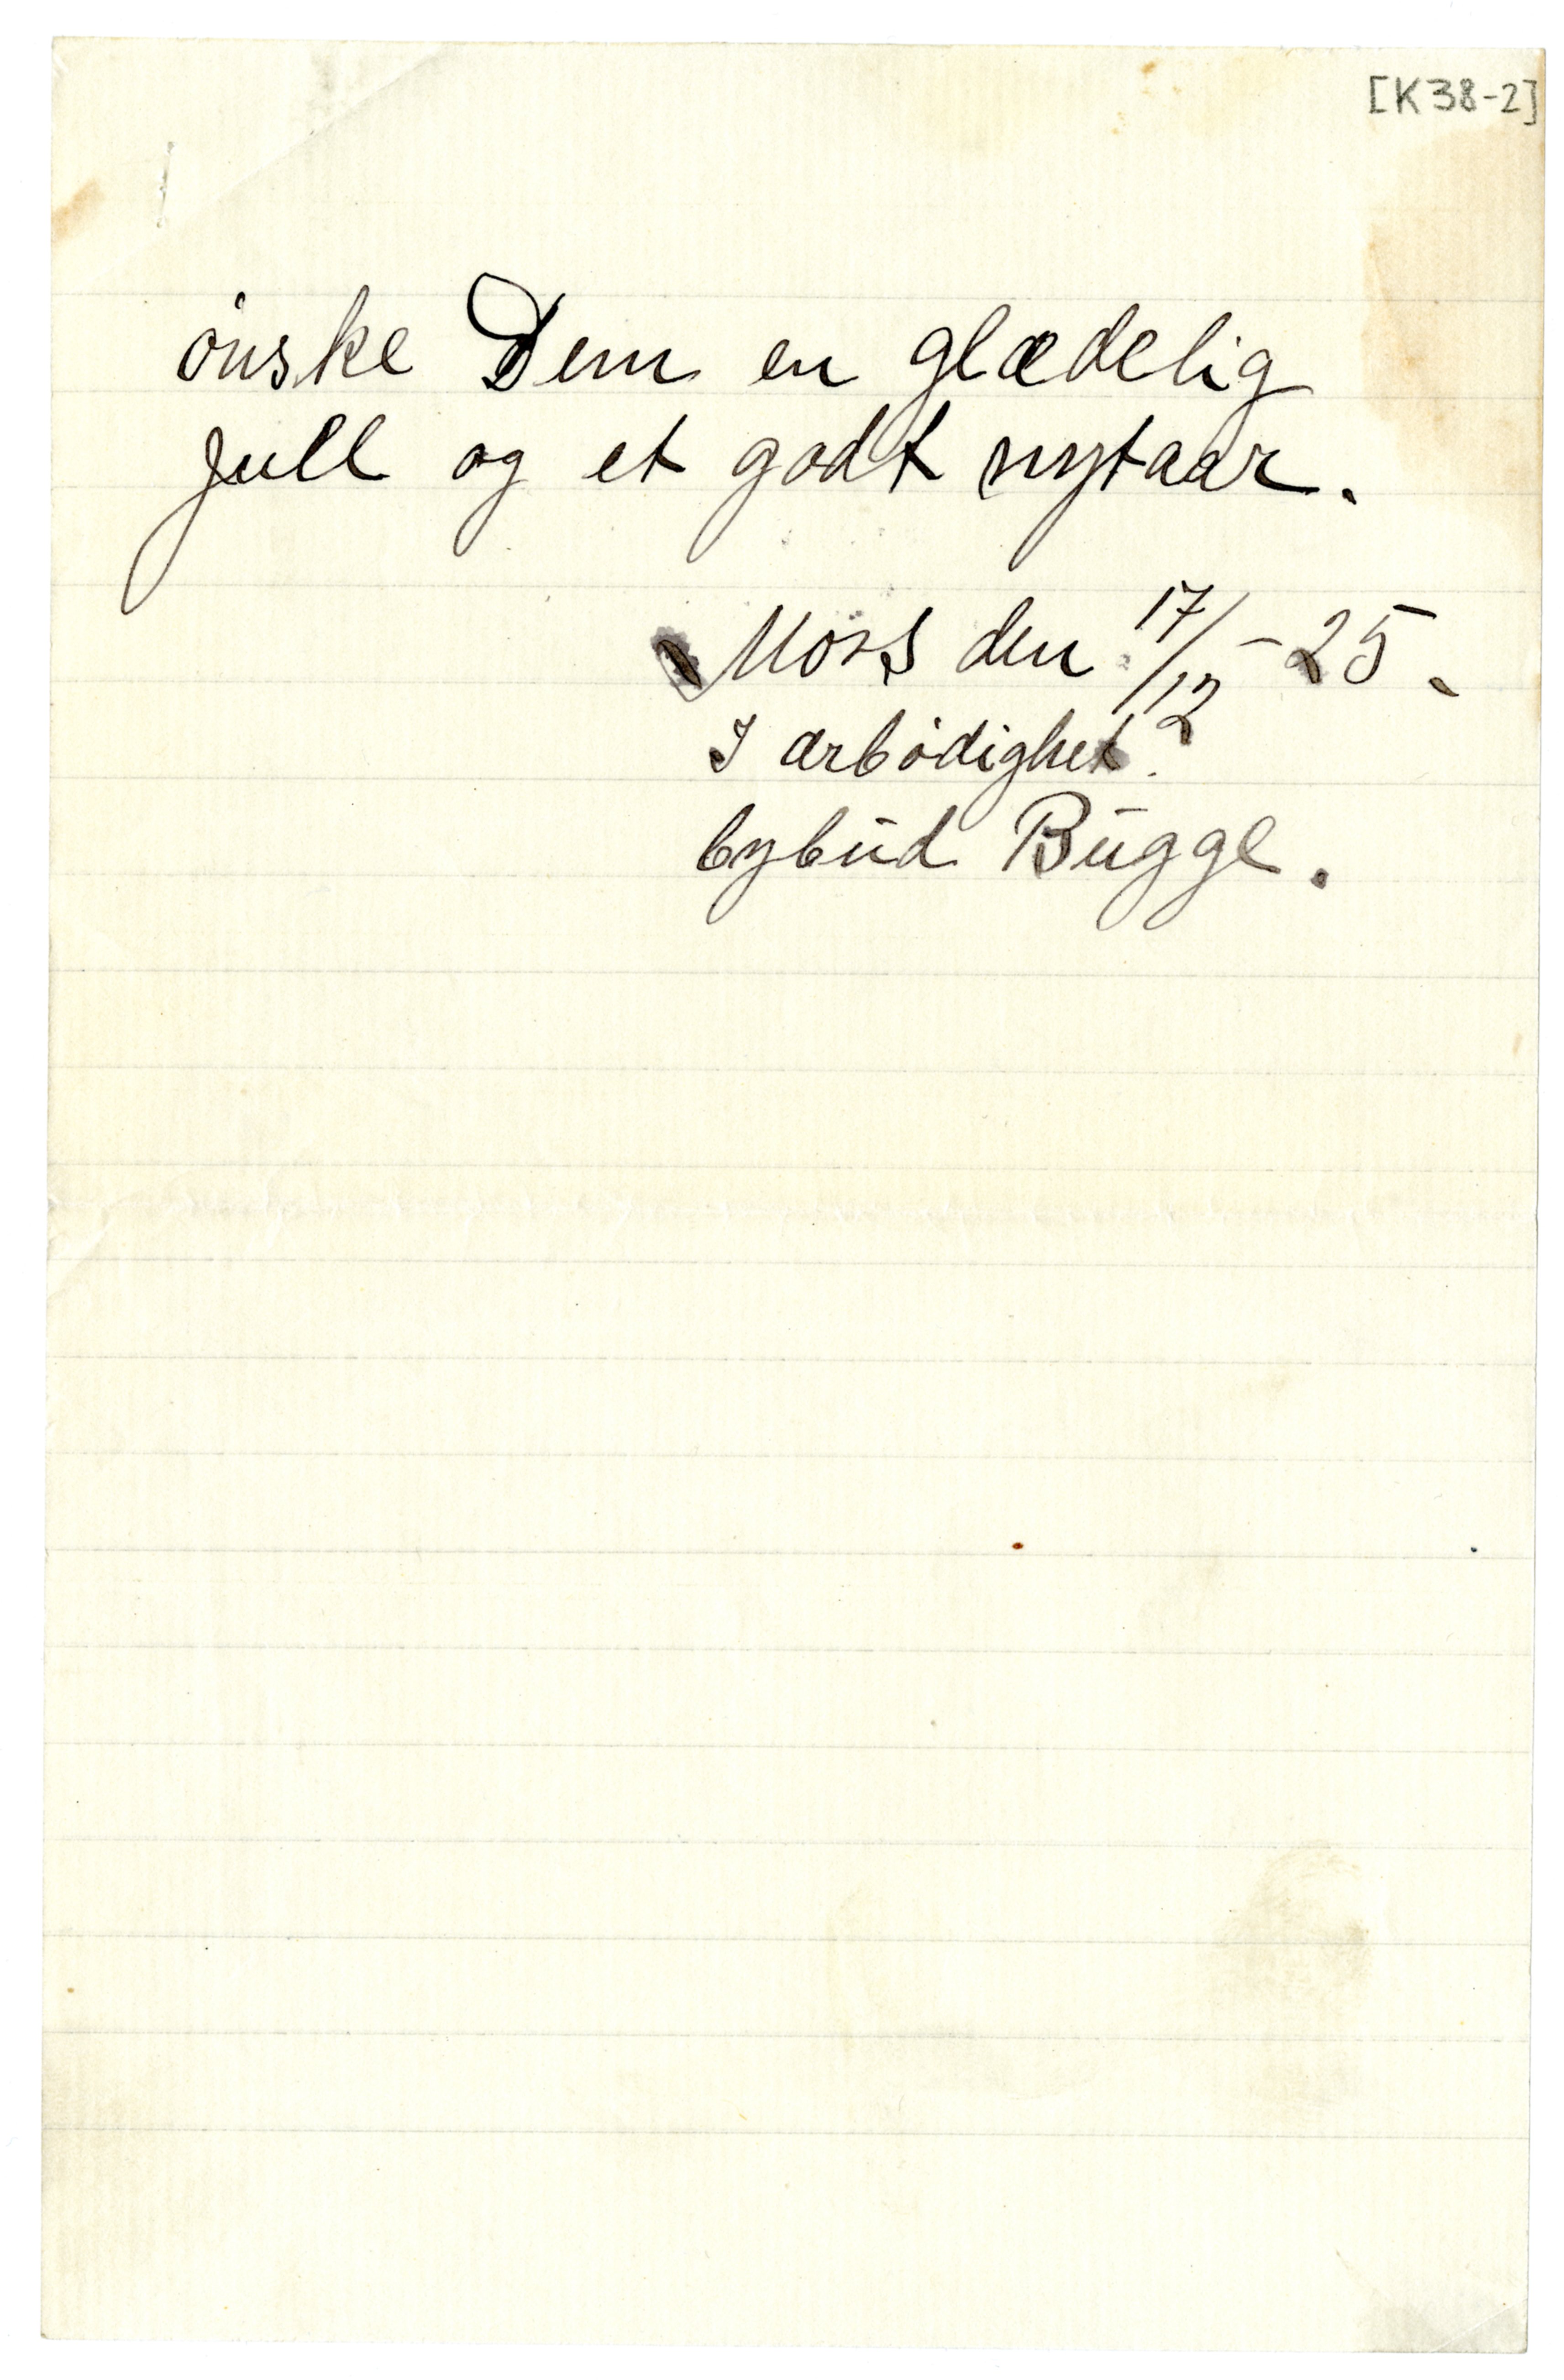 [K38-2]
ønske Dem en glædelig
jull og et godt nytaar.
Moss den 17/12 - 25.
I ærbødighet.
bybud Bugge.